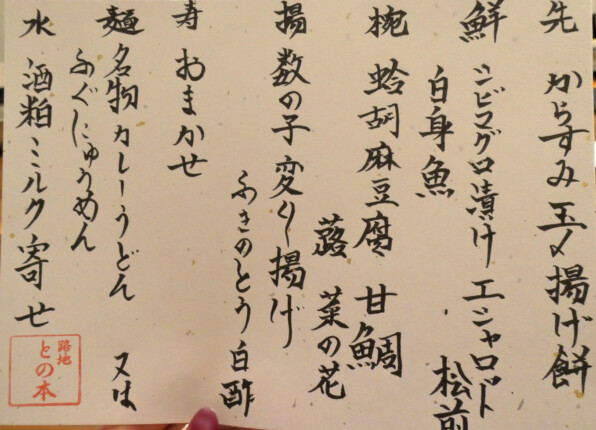 先 からすみ 玉〆 揚げ餅
鮮 シビマグロ漬け エシャロット
白身魚 松前
椀 蛤胡麻豆腐 甘鯛
蕗 菜の花
揚 数の子変り揚げ
ふきのとう 白酢
寿 おまかせ
麺 名物カレーうどん 又は
ふぐにゅうめん
水 酒粕ミルク寄せ
路地
との本